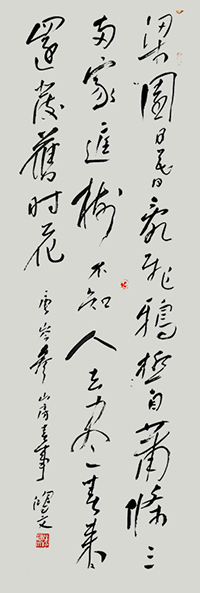 梁园日暮乱飞鸦极目萧条三
两家庭树不知人去尽春来
还发旧时花 唐岑参山房春事